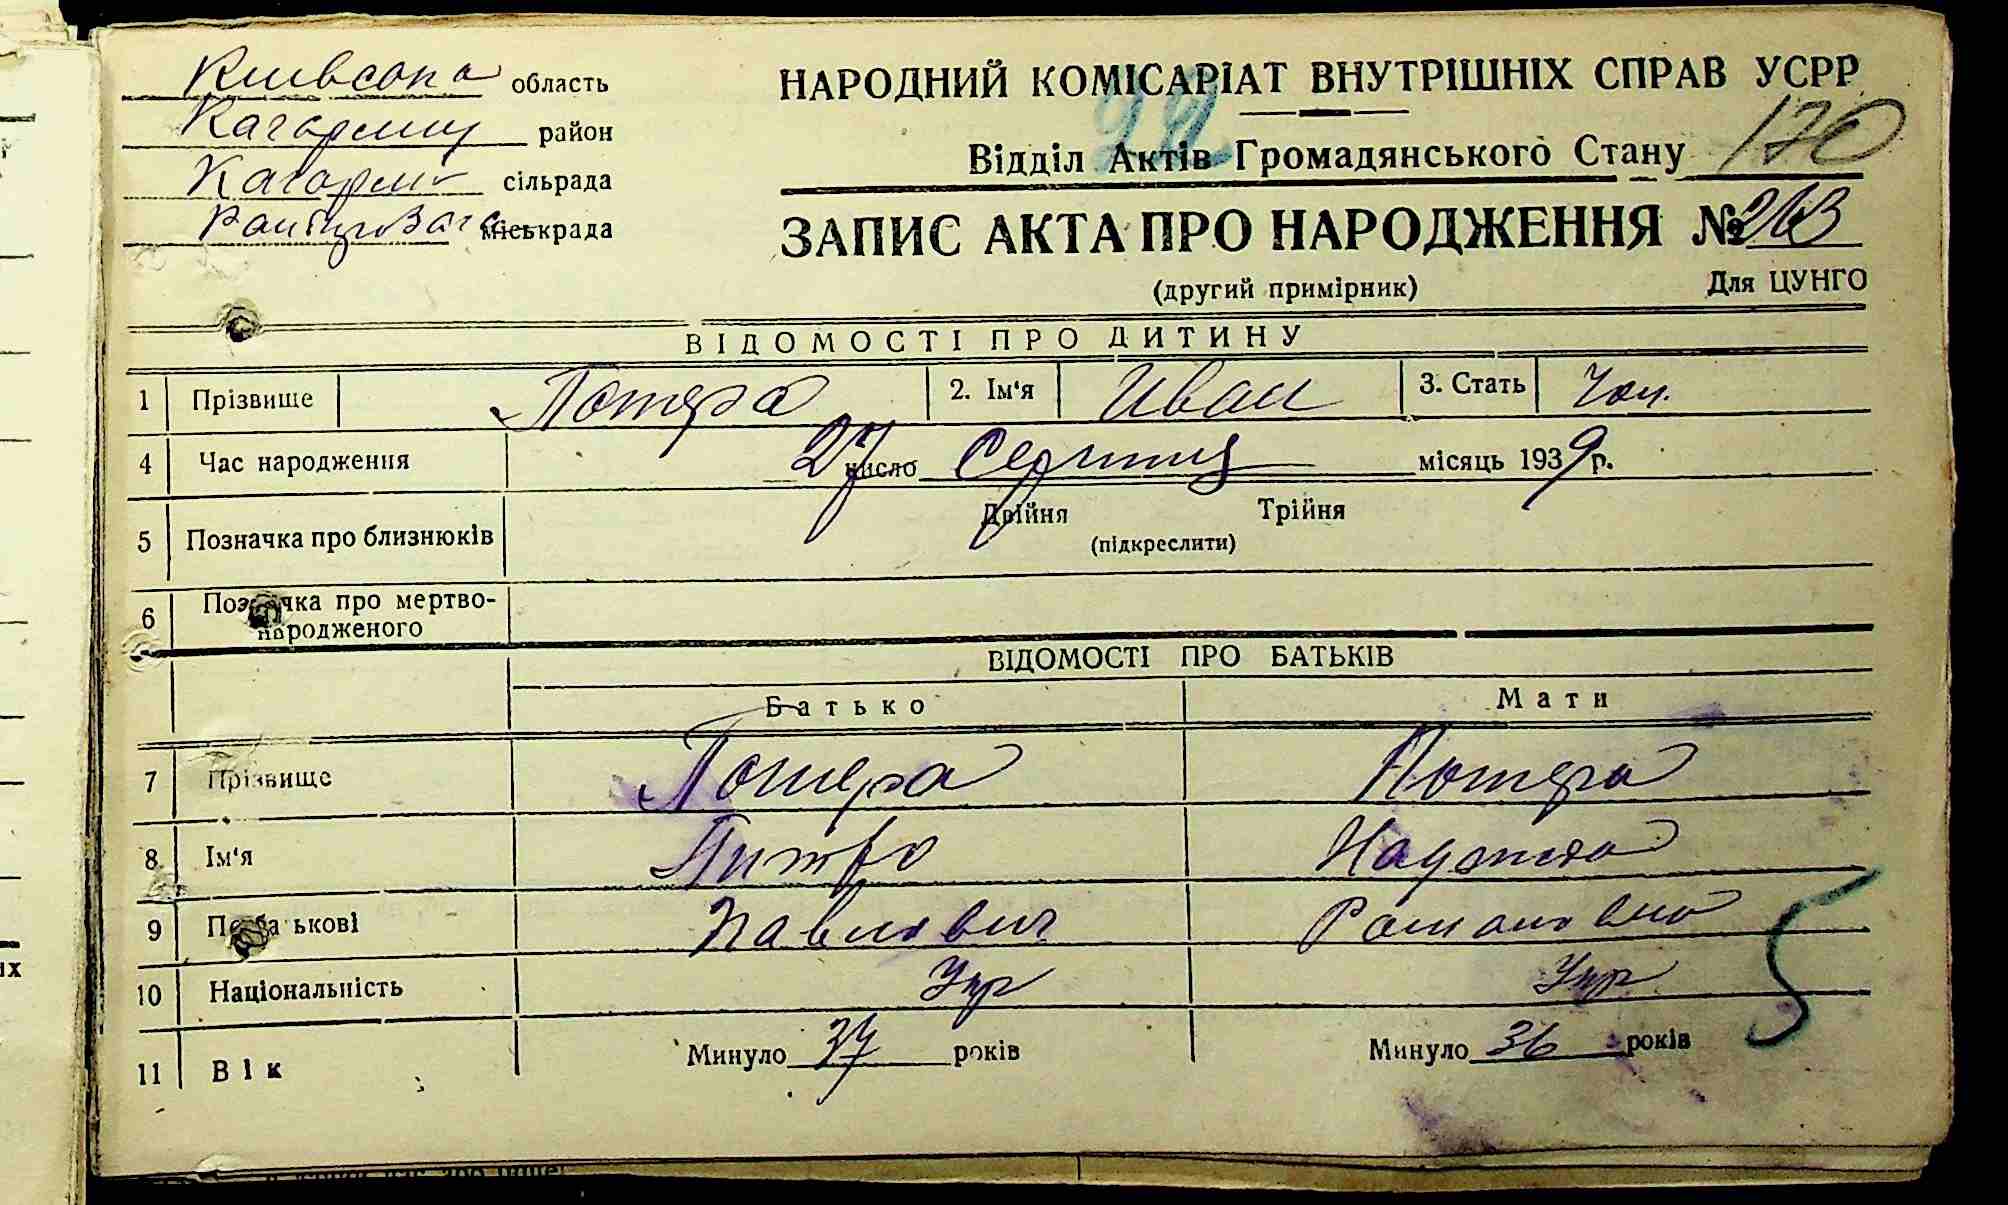 Київська область
Кагарлиц район
Кагарли сільрада
міськрада
НАРОДНИЙ КОМІСАРІАТ ВНУТРІШНІХ СПРАВ УСРР
22
Відділ Актів Громадянського Стану 170
ЗАПИС АКТА ПРО НАРОДЖЕННЯ №
(другий примірник)
Для ЦУНГО
ВІДОМОСТІ ПРО ДИТИНУ
1 Прізвище Потера 2. Ім'я Иван 3. Стать Чол.
4 Час народження 27 число Серпня місяць 1939 р.
5 Позначка про близнюків Двійня Трійня
(підкреслити)
6 Позначка про мертво-
народженого
ВІДОМОСТІ ПРО БАТЬКІВ
Батько Мати
7 Прізвище Потера Потера
8 Ім'я Питро Надежда
9 По батькові Павлович Романовна
10 Національність Укр Укр
11 Вік Минуло 37 років Минуло 36 років
5